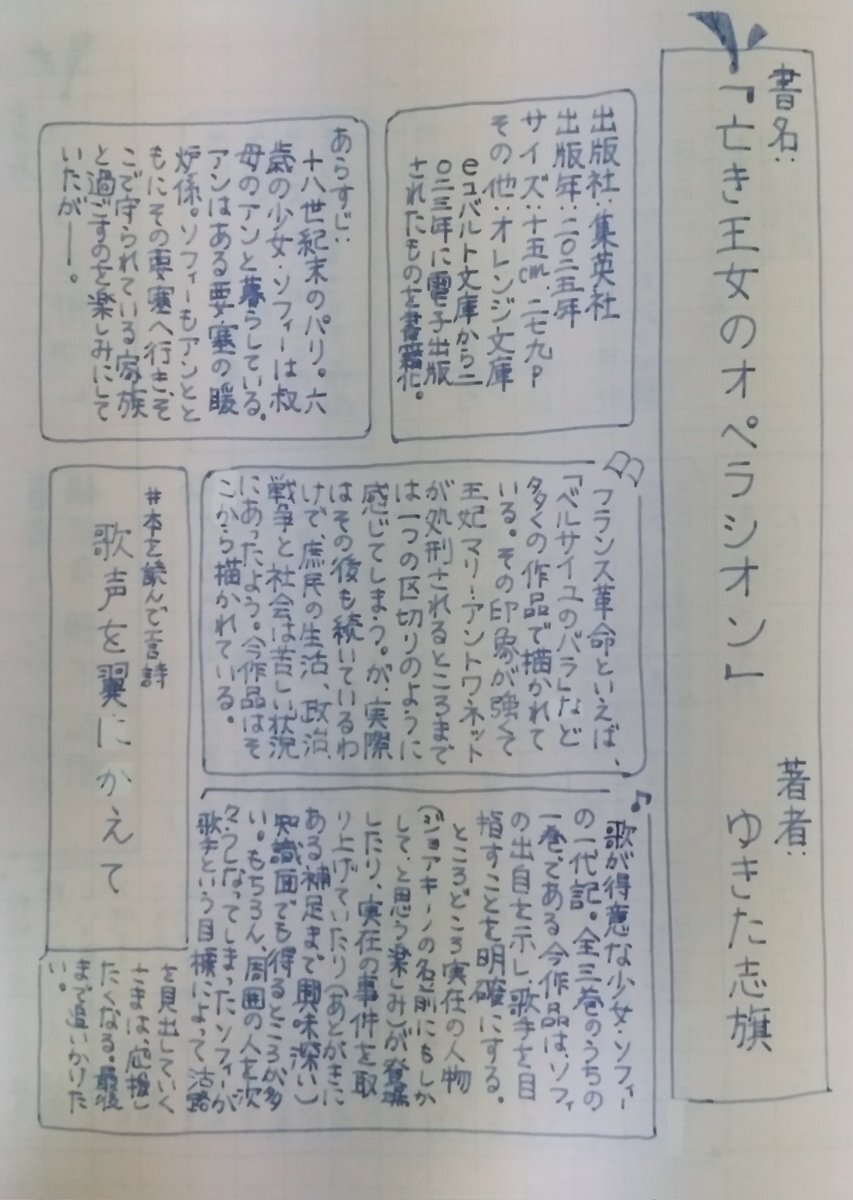 書名:
『亡き王女のオペラシオン』
著者:
ゆきた志旗
出版社:集英社
出版年:二〇二五年
サイズ:十五cm 二七九P
その他:オレンジ文庫
eコバルト文庫から二
〇二三年に電子出版
されたものを書籍化。
あらすじ:
十八世紀末のパリ。六
歳の少女・ソフィーは叔
母のアンと暮らしている。
アンはある要塞の暖
炉係。ソフィーもアンとと
もにその要塞へ行き、そ
こで守られている家族
と過ごすのを楽しみにして
いたが――。
フランス革命といえば、
『ベルサイユのバラ』など
多くの作品で描かれて
いる。その印象が強くて
王妃マリー・アントワネット
が処刑されるところまで
は一つの区切りのように
感じてしまう。が、実際
はその後も続いているわ
けで、庶民の生活、政治、
戦争と社会は苦しい状況
にあったよう。今作品はそ
こから描かれている。
#本を読んで一言詩
歌声を翼にかえて
歌が得意な少女・ソフィー
の一代記。全三巻のうちの
一巻である今作品は、ソフィ
の出自を示し、歌手を目
指すことを明確にする。
ところどころ実在の人物
(ジョアキーノの名前にもしか
して、と思う楽しみ)が登場
したり、実在の事件を取
り上げていたり(あとがきに
ある補足まで興味深い)
知識面でも得るところが多
い。もちろん、周囲の人を次
々うしなってしまったソフィーが
歌手という目標によって活路
を見出していく
さまは、応援し
たくなる。最後
まで追いかけた
い。